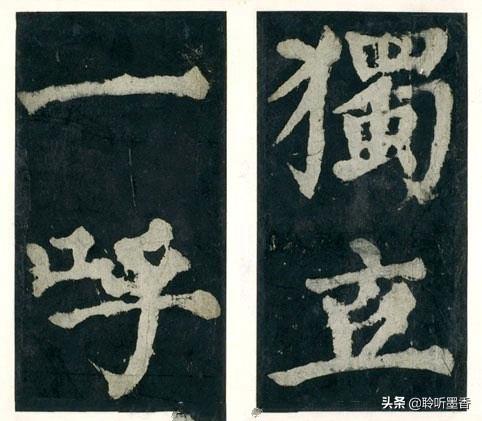 獨立
一呼
头条 @聆听墨香